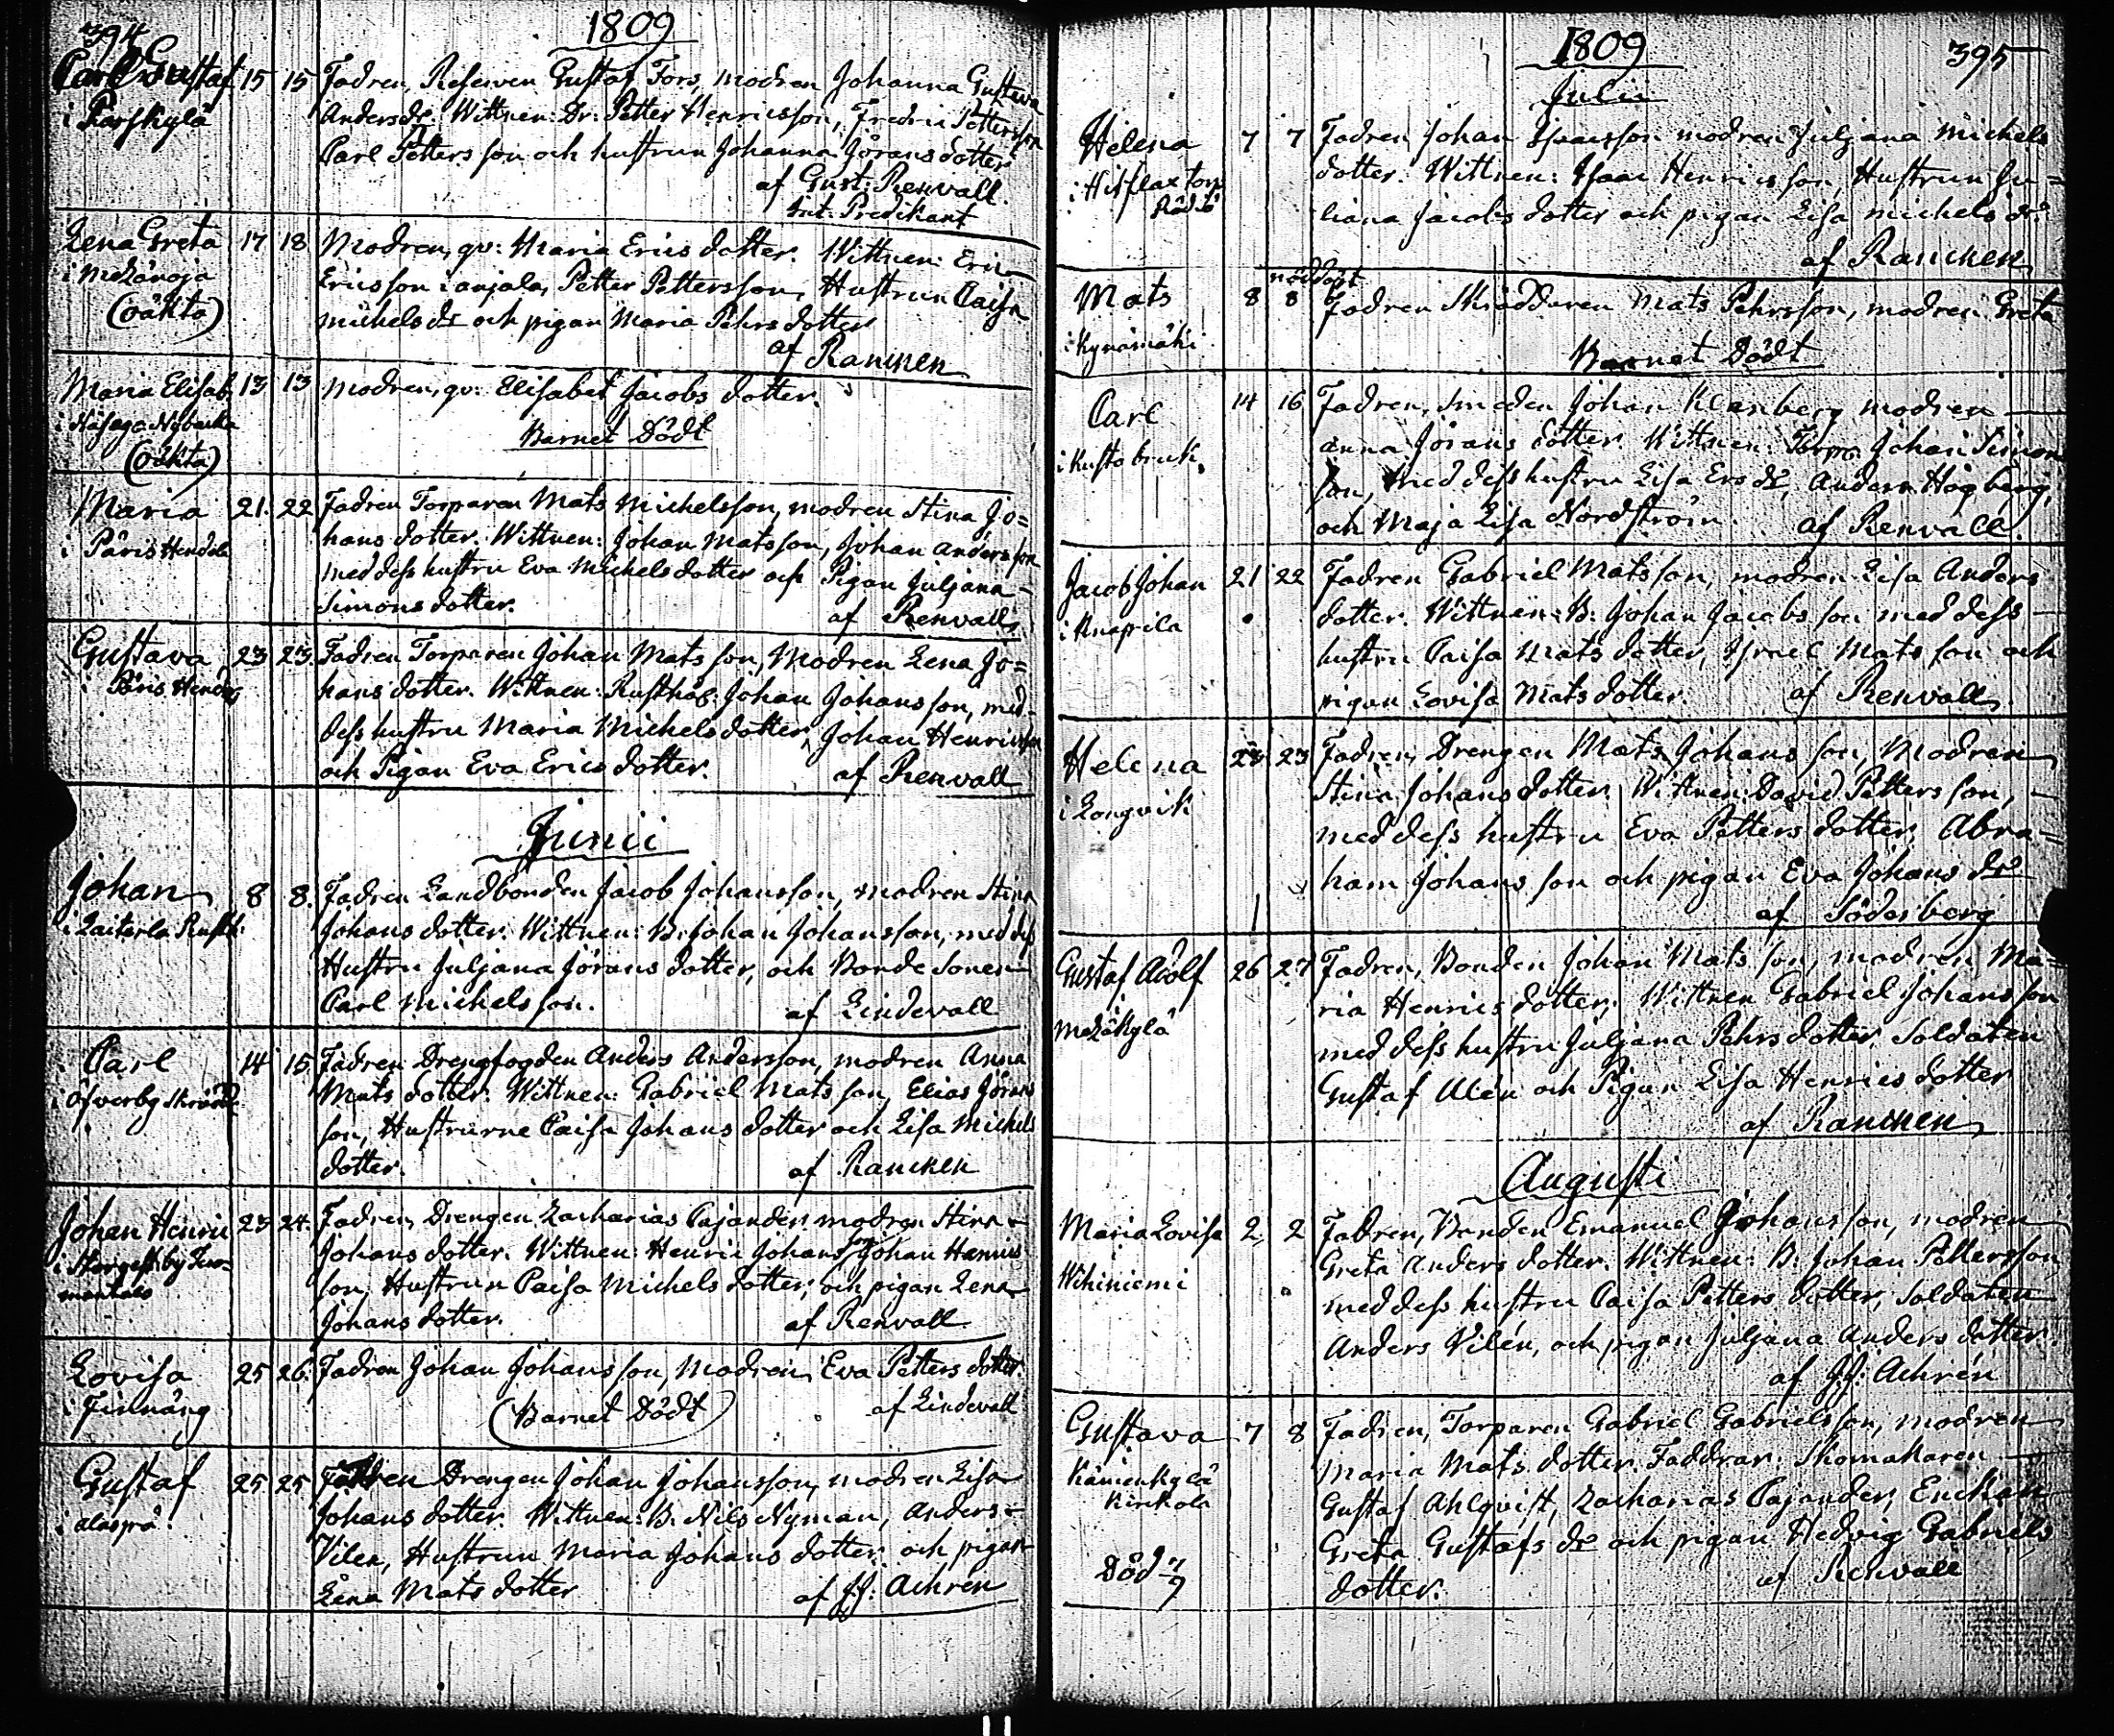 394
1809
Carl Gustaf 15 15 Fadren, Reserven Gustaf Fors, modren Johanna Gustava
i Karskylä Andersdr. Wittnen: Dr: Petter Henricsson, Fredric Pettersson
Carl Petters son och hustrun Johanna Jörans dotter
af Gust: Renvall.
Predikant
Lena Greta 17 18 Modren, qv: Maria Erics dotter. Wittnen: Eric
Ericsson i anjala, Petter Pettersson, Hustrun Caisa
(oäkta) michels dr och pigan Maria Pehrs dotter
af Rancken
Maria Elisab. 13 13 Modren, qv: Elisabet Jacobs dotter.
Barnet Dödt
(oäkta)
Maria 21. 22 Fadren Torparen Mats Michelsson, modren Stina Jo=
i Päris Hendela hans dotter. Wittnen: Johan Matsson, Johan andersson
med dess hustru Eva Michels dotter och Pigan Juljana
Simons dotter. af Renvall
Gustava 23 23 Fadren Torparen Johan Mats son, Modren Lena Jo=
i Päris Hendela hans dotter. Wittnen: Rusthål: Johan Johansson, med
dess hustru Maria Michels dotter, Johan Henricsson
och Pigan Eva Erics dotter. af Renvall
Junii
Johan 8 8. Fadren Landbonden Jacob Johansson, modren Stina
i Laiterla Rusth: Johans dotter. Wittnen: B: Johan Johansson, med dess
Hustru Juljana Jörans dotter, och Bonde Sonen
Carl Michels son. af Lindevall
Carl 14 15 Fadren Drengfogden Anders Andersson, modren Anna
i öfverby Mats dotter. Wittnen: Gabriel Mats son, Elias Jörans
son, Hustrurne Caisa Johans dotter och Lisa Michels
dotter. af Rancken
Johan Henric 23 24. Fadren, Drengen Zacharias Cajander, modren Stina
Johans dotter. Wittnen: Henric Johans son Johan Henrics
son, Hustrun Caisa Michels dotter, och pigan Lena
Johans dotter. af Renvall
Lovisa 25 26. Fadren Johan Johans son, Modren Eva Petters dotter.
i Finnäng (Barnet Dödt) af Lindevall
Gustaf 25 25 Fadren Drengen Johan Johansson, modren Lisa
i alaspä Johans dotter. Wittnen: B. Nils Nyman, Anders
Vilen, Hustrun Maria Johans dotter och pigan
Lena Mats dotter af J:J: Achren
1809 395
Julii
Helena 7 7 Fadren Johan Isaacsson modren Juljana Michels
dotter. Wittnen: Isaac Henrics son, Hustrun Ju=
liana Jacobs dotter och pigan Lisa Michels dr
af Rancken
nöddöpt
Mats 8 8 Fadren Skräddaren Mats Pehrsson, modren Greta
i Kynämäki Barnet Dödt
Carl 14 16 Fadren, Smeden Johan Klenberg modren
anna Jörans dotter Wittnen: Torp: Johan Simon
i Kusto bruk. son, med dess hustru Lisa Ers dr, Anders Högberg,
och Maja Lisa Nordström. af Renvall.
Jacob Johan 21 22 Fadren Gabriel Mats son, modren Lisa Anders
i Knapila dotter. Wittnen: B: Johan Jacobs son med dess
hustru Caisa Mats dotter, Israel Mats son och
pigan Lovisa Mats dotter. af Renvall
Helena 23 Fadren, Drengen Mats Johans son, Modren
i Longvik Stina Johans dotter, Wittnen: David Petters son,
med dess hustru Eva Petters dotter, Abra=
ham Johans son och pigan Eva Johans dr
af Söderberg
Gustaf Adolf 26 27 Fadren, Bonden Johan Mats son, modren Ma=
Metzäkylä ria Henrics dotter, Wittnen Gabriel Johans son
med dess hustru Juljana Pehrs dotter, Soldaten
Gustaf Alén och Pigan Lisa Henrics dotter
af Rancken
Augusti
Maria Lovisa 2 2 Fadren, Bonden Emanuel Johansson, modren
Wihiniemi Greta Anders dotter. Wittnen: B. Johan Pettersson,
med dess hustru Caisa Petters dotter, Soldaten
Anders Vilén, och pigan Juljana Anders dotter
af J:J: Achrén
Gustava 7 8 Fadren, Torparen Gabriel Gabriels son, modren
Maria Mats dotter. Faddrar: Skomakaren
Kirkola Gustaf Ahlqvist, Zacharias Cajander, Enckan
Greta Gustafs dr och pigan Hedvig Gabriels
Död 7/9 dotter. af Renvall